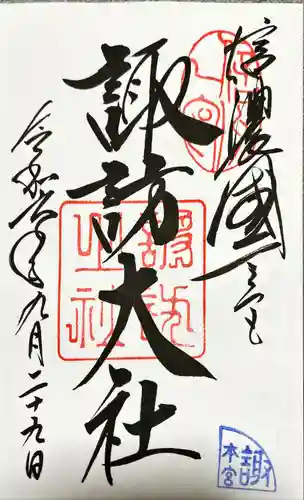 信濃國一之宮
諏訪大社
令和六年九月二十九日
諏訪
大社
諏
本宮